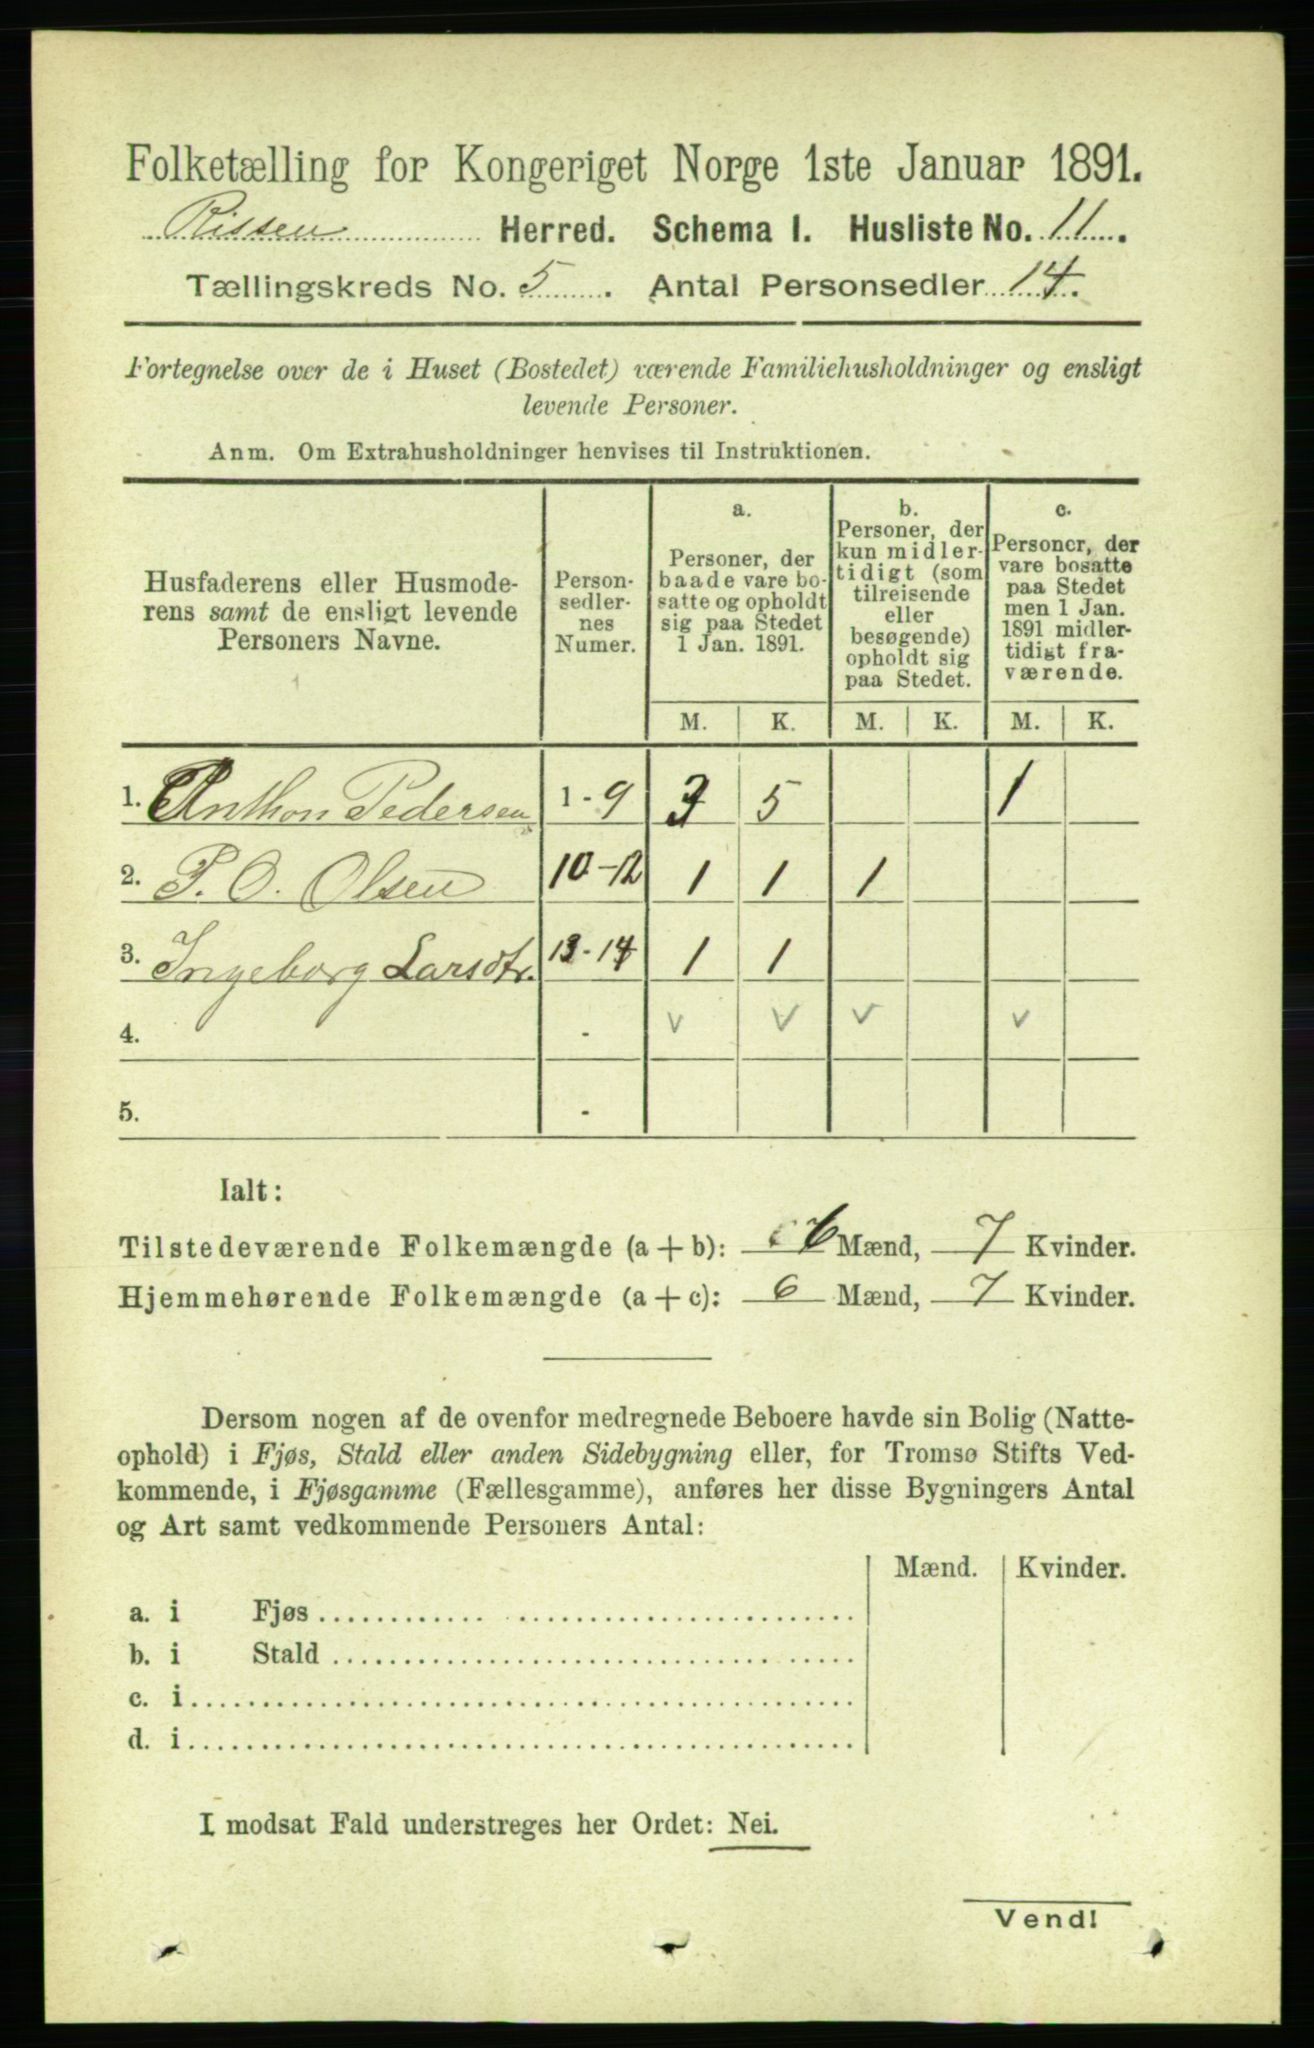 Folketælling for Kongeriget Norge 1ste Januar 1891.
Rissen Herred. Schema I. Husliste No. 11.
Tællingskreds No. 5. Antal Personsedler 14.
Fortegnelse over de i Huset (Bostedet) værende Familiehusholdninger og ensligt
levende Personer.
Anm. Om Extrahusholdninger henvises til Instruktionen.
Husfaderens eller Husmode-
rens samt de ensligt levende
Personers Navne.
Person-
sedler-
nes
Numer.
a.
Personer, der
baade vare bo-
satte og opholdt
sig paa Stedet
1 Jan. 1891.
b.
Personer, der
kun midler-
tidigt (som
tilreisende
eller
besøgende)
opholdt sig
paa Stedet.
c.
Personer, der
vare bosatte
paa Stedet
men 1 Jan.
1891 midler-
tidigt fra-
værende.
M. K. M. K. M. K.
1. Anthon Pedersen 1 - 9 3 5 1
2. P. O. Olsen 10 - 12 1 1 1
3. Ingeborg Larsdtr. 13 - 14 1 1
4. - v v v v
5. -
Ialt:
Tilstedeværende Folkemængde (a + b): 6 Mænd, 7 Kvinder.
Hjemmehørende Folkemængde (a + c): 6 Mænd, 7 Kvinder.
Dersom nogen af de ovenfor medregnede Beboere havde sin Bolig (Natte-
ophold) i Fjøs, Stald eller anden Sidebygning eller, for Tromsø Stifts Ved-
kommende, i Fjøsgamme (Fællesgamme), anføres her disse Bygningers Antal
og Art samt vedkommende Personers Antal:
Mænd. Kvinder.
a. i Fjøs
b. i Stald
c. i
d. i
I modsat Fald understreges her Ordet: Nei.
Vend!